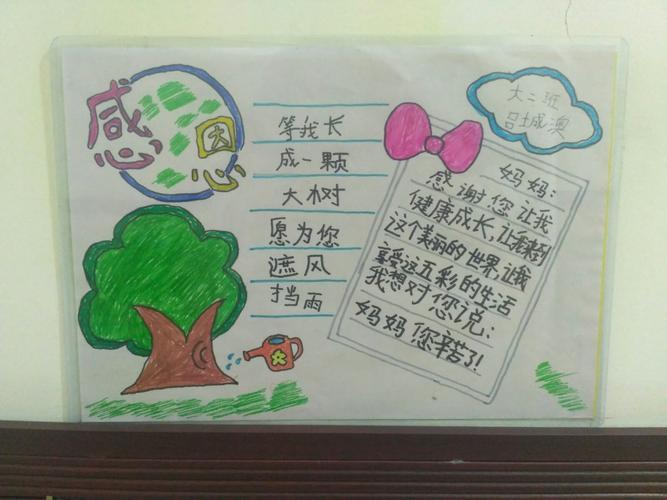 感恩
等我长
成一颗
大树
愿为您
遮风
挡雨
大二班
吕城澳
妈妈：
感谢您让我
健康成长,让我来到
这个美丽的世界,让我
享受这五彩的生活
我想对您说：
妈妈您辛苦了!